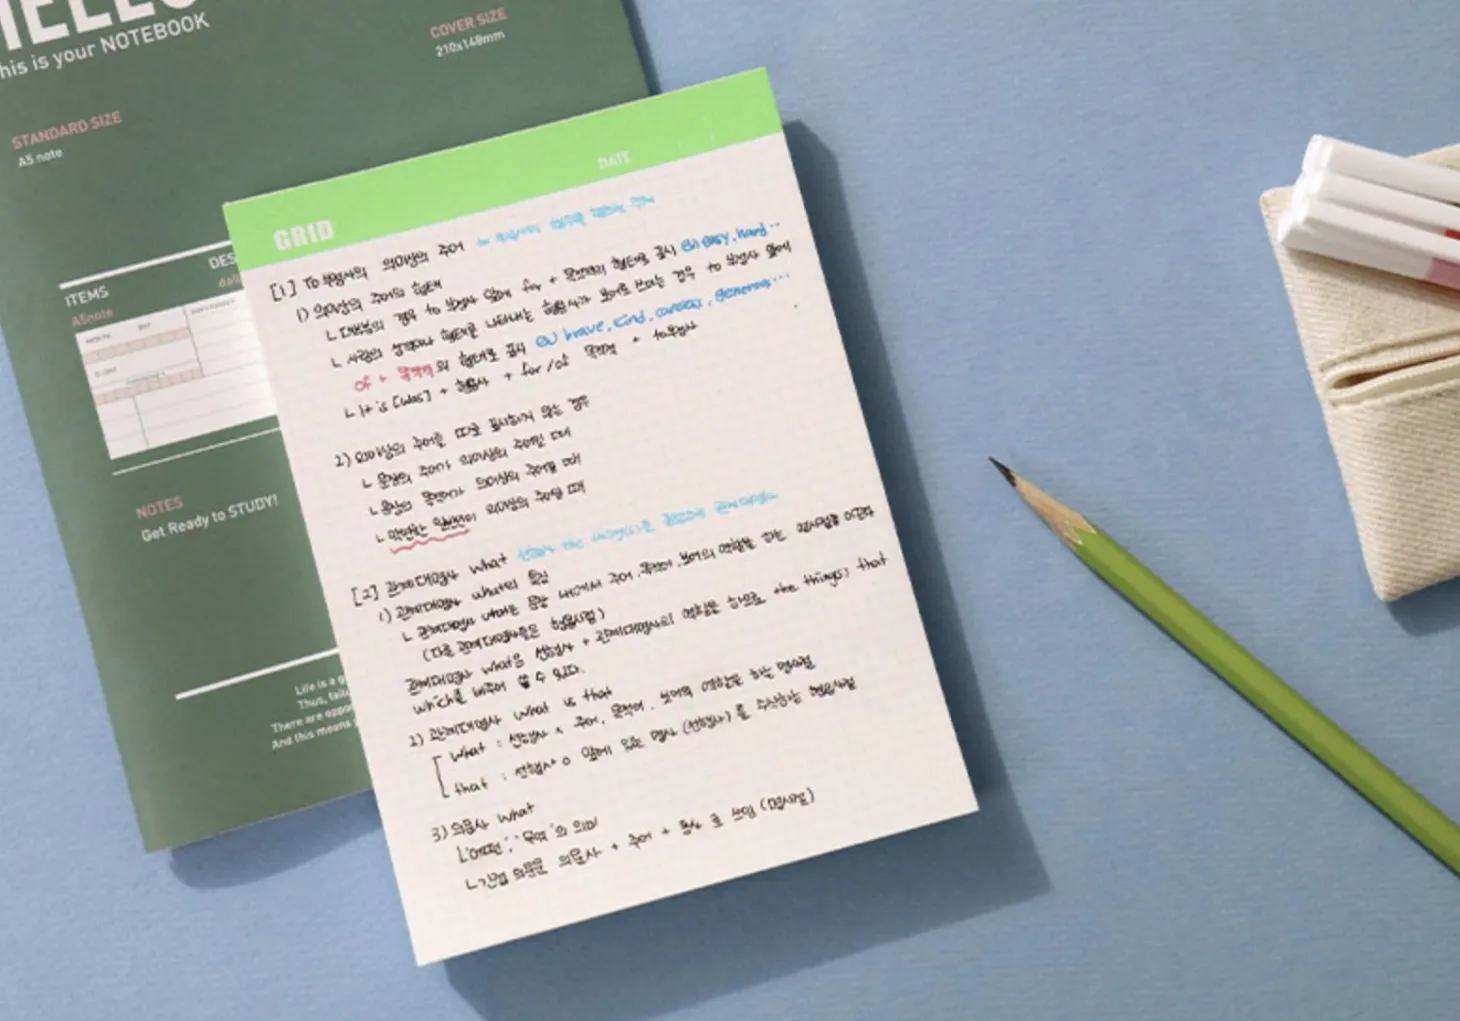 HELLO
this is your NOTEBOOK
COVER SIZE
210x148mm
STANDARD SIZE
A5 note
ITEMS
A5note
NOTES
Get Ready to STUDY!
Life is a
Thus,
There are
And this means
DATE
GRID
[1] To 부정사의 의미상의 주어 to 부정사의 주어
1) 의미상의 주어의 형태
ㄴ 대부분의 경우 to 부정사 앞에 for + 목적격의 형태로 표시 ex) easy, hard..
ㄴ 사람의 성격이나 형태를 나타내는 형용사가 보어로 쓰이는 경우 to 부정사 앞에
of + 목적격의 형태로 표시 ex) brave, kind, careless, generous...
ㄴ It is [was] + 형용사 + for / of 목적격 + to부정사
2) 의미상의 주어를 따로 표시하지 않는 경우
ㄴ 문장의 주어가 의미상의 주어일 때
ㄴ 문장의 목적어가 의미상의 주어일 때
ㄴ 막연한 일반인이 의미상의 주어일 때
[2] 관계대명사 what 선행사 the thing(s)을 관계대명사
1) 관계대명사 what의 특징
ㄴ 관계대명사 what은 문장 내에서 주어, 목적어, 보어의 역할을 하는 명사절을 이끈다
(다른 관계대명사들은 형용사절)
관계대명사 what은 선행사 + 관계대명사의 역할을 하므로 the thing(s) that
which로 바꾸어 쓸 수 있다.
2) 관계대명사 what vs that
what : 선행사 x 주어, 목적어, 보어의 역할을 하는 명사절
that : 선행사 o 앞에 있는 명사 (선행사) 를 수식하는 형용사절
3) 의문사 what
ㄴ '어떤', '무엇'의 의미
ㄴ 간접 의문문 의문사 + 주어 + 동사 로 쓰임 (명사절)